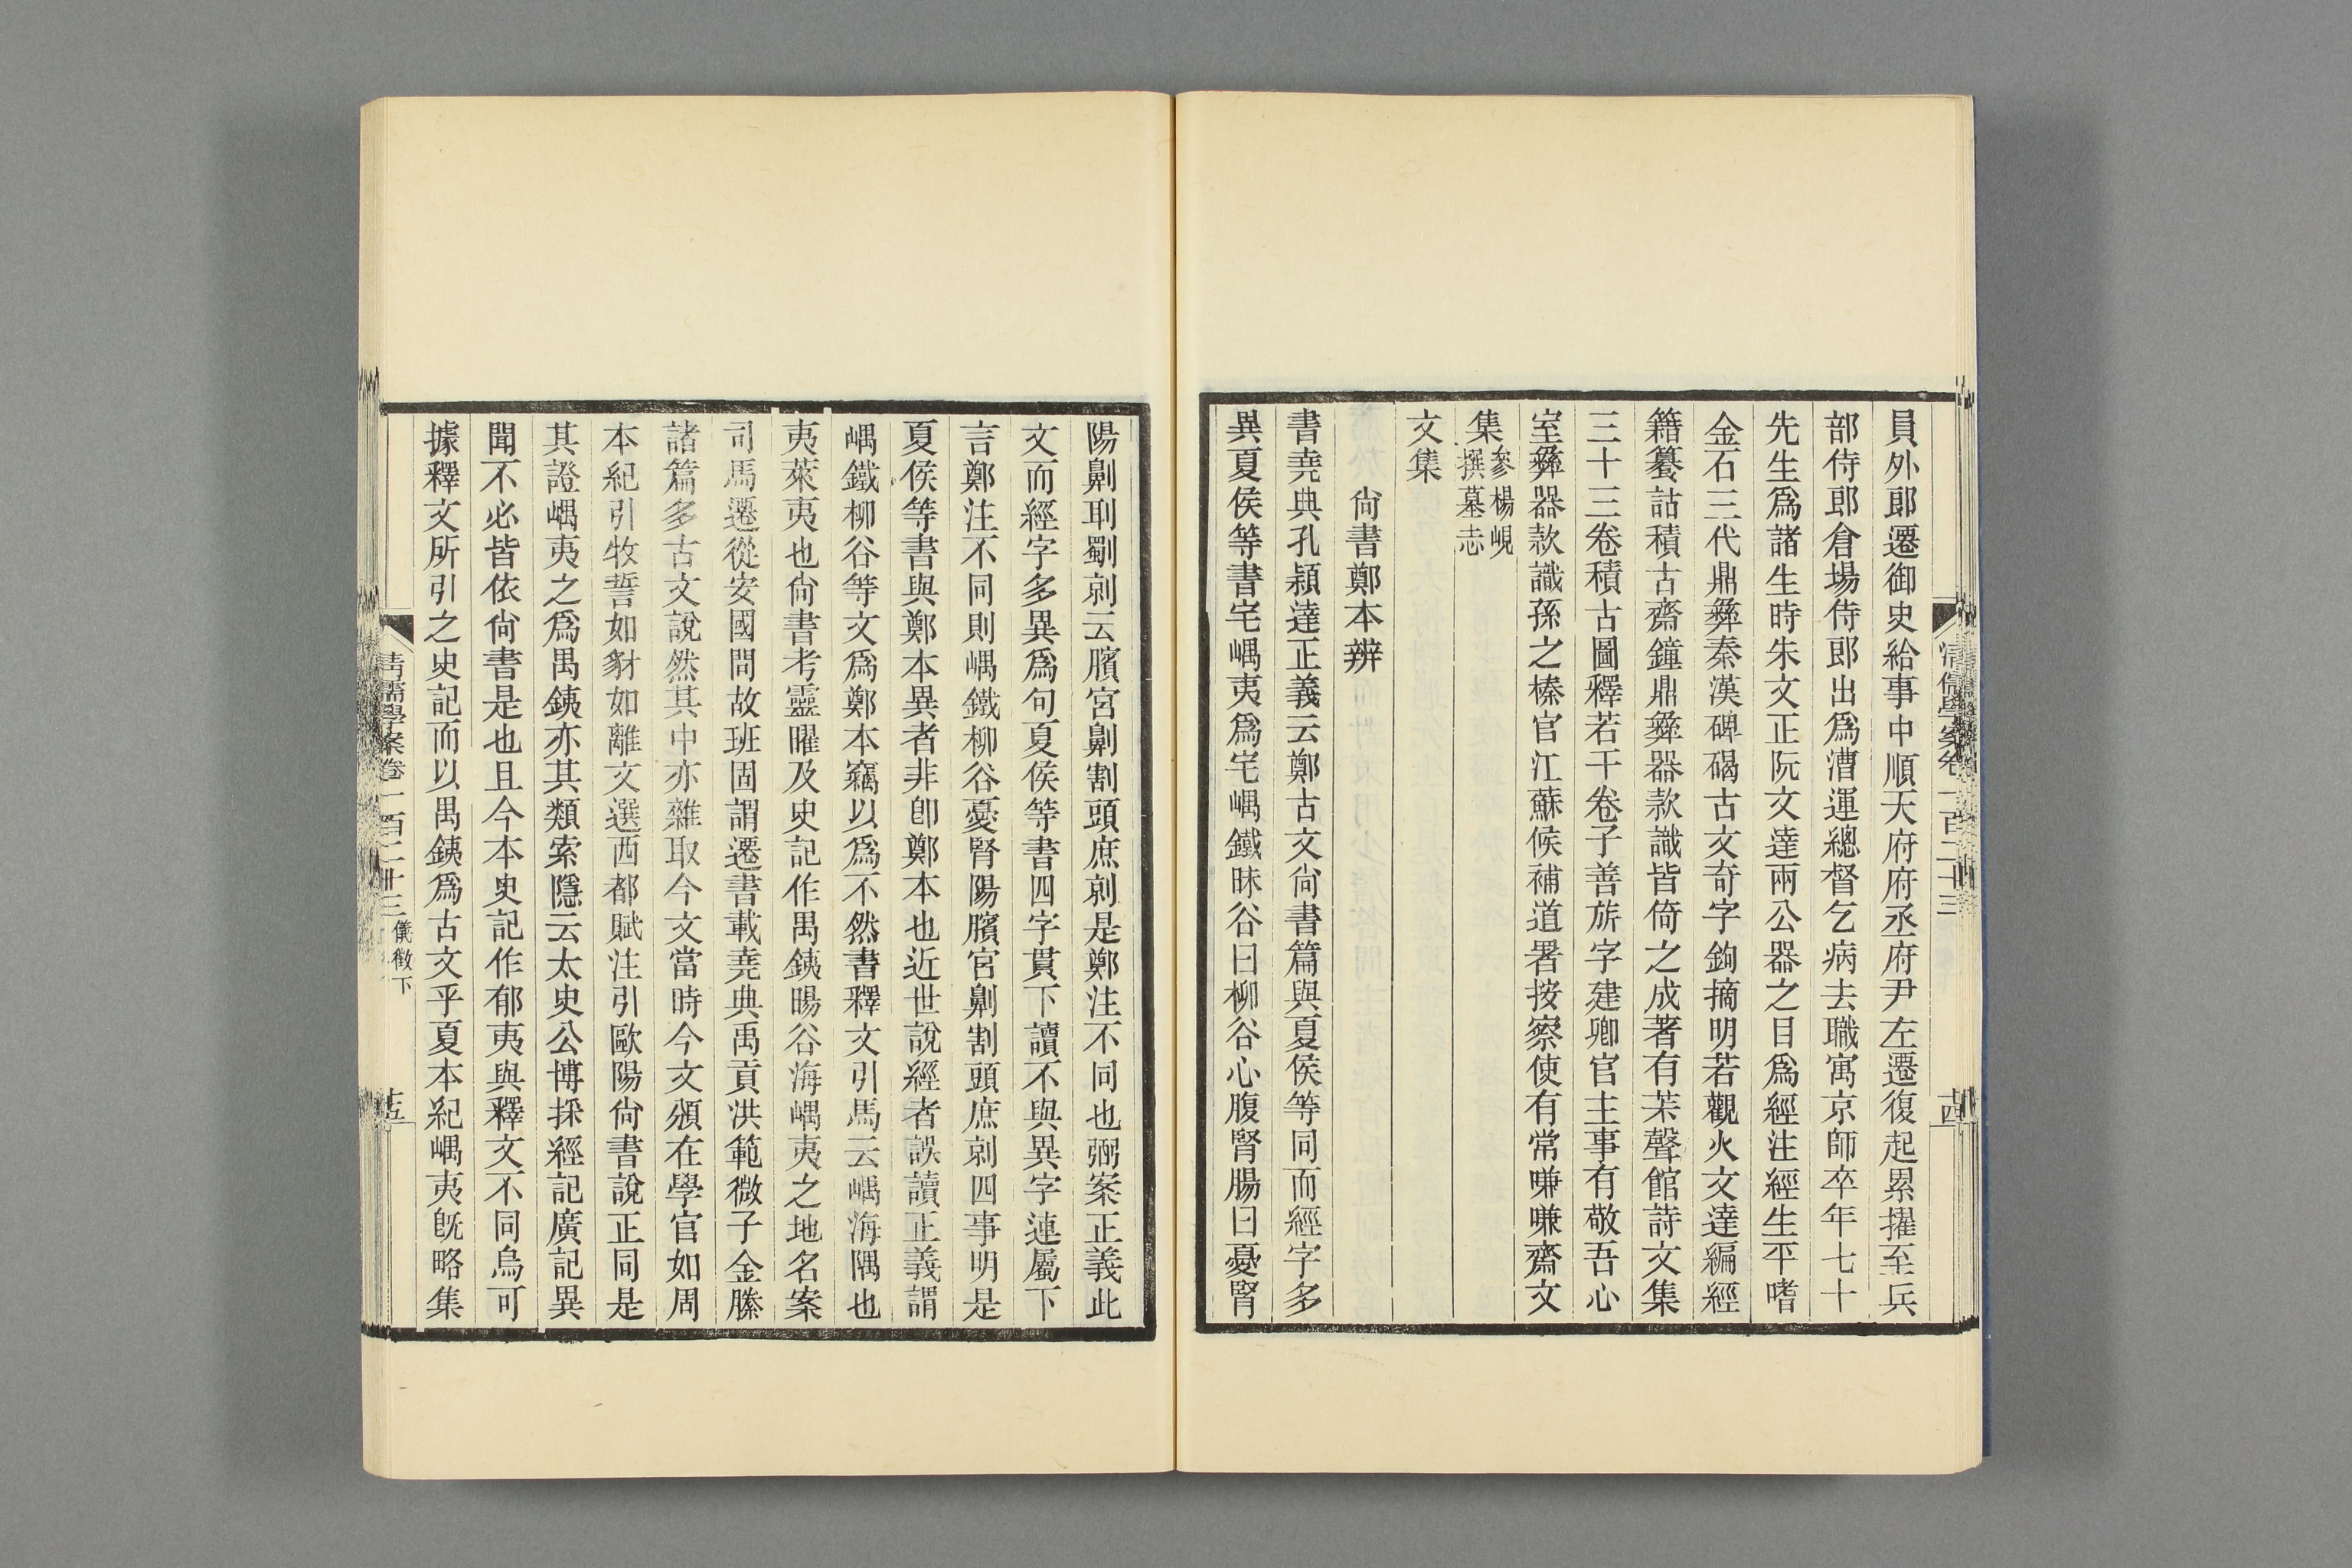 員外郎遷御史給事中順天府府丞府尹左遷復起累擢至兵
部侍郎倉場侍郎出爲漕運總督乞病去職寓京師卒年七十
先生爲諸生時朱文正阮文達兩公器之目爲經注經生平嗜
金石三代鼎彝秦漢碑碣古文奇字鉤摘明若觀火文達編經
籍籑詁積古齋鐘鼎彝器款識皆倚之成著有茮聲館詩文集
三十三卷積古圖釋若干卷子善旂字建卿官主事有敬吾心
室彝器款識孫之榛官江蘇候補道署按察使有常慊慊齋文
集參楊峴
撰墓志
文集
尙書鄭本辨
書堯典孔穎達正義云鄭古文尙書篇與夏侯等同而經字多
異夏侯等書宅嵎夷爲宅嵎鐵昧谷曰柳谷心腹腎腸曰憂腎
陽劓刵劅剠云臏宮劓割頭庶剠是鄭注不同也弼案正義此
文而經字多異爲句夏侯等書四字貫下讀不與異字連屬下
言鄭注不同則嵎鐵柳谷憂腎陽臏宮劓割頭庶剠四事明是
夏侯等書與鄭本異者非卽鄭本也近世說經者誤讀正義謂
嵎鐵柳谷等文爲鄭本竊以爲不然書釋文引馬云嵎海隅也
夷萊夷也尙書考靈曜及史記作禺銕暘谷海嵎夷之地名案
司馬遷從安國問故班固謂遷書載堯典禹貢洪範微子金縢
諸篇多古文說然其中亦雜取今文當時今文頒在學官如周
本紀引牧誓如豺如離文選西都賦注引歐陽尙書說正同是
其證嵎夷之爲禺銕亦其類索隱云太史公博採經記廣記異
聞不必皆依尙書是也且今本史記作郁夷與釋文不同烏可
據釋文所引之史記而以禺銕爲古文乎夏本紀嵎夷旣略集
清儒學案卷一百二十三
十四
清儒學案卷一百二十三 儀徵下
十五